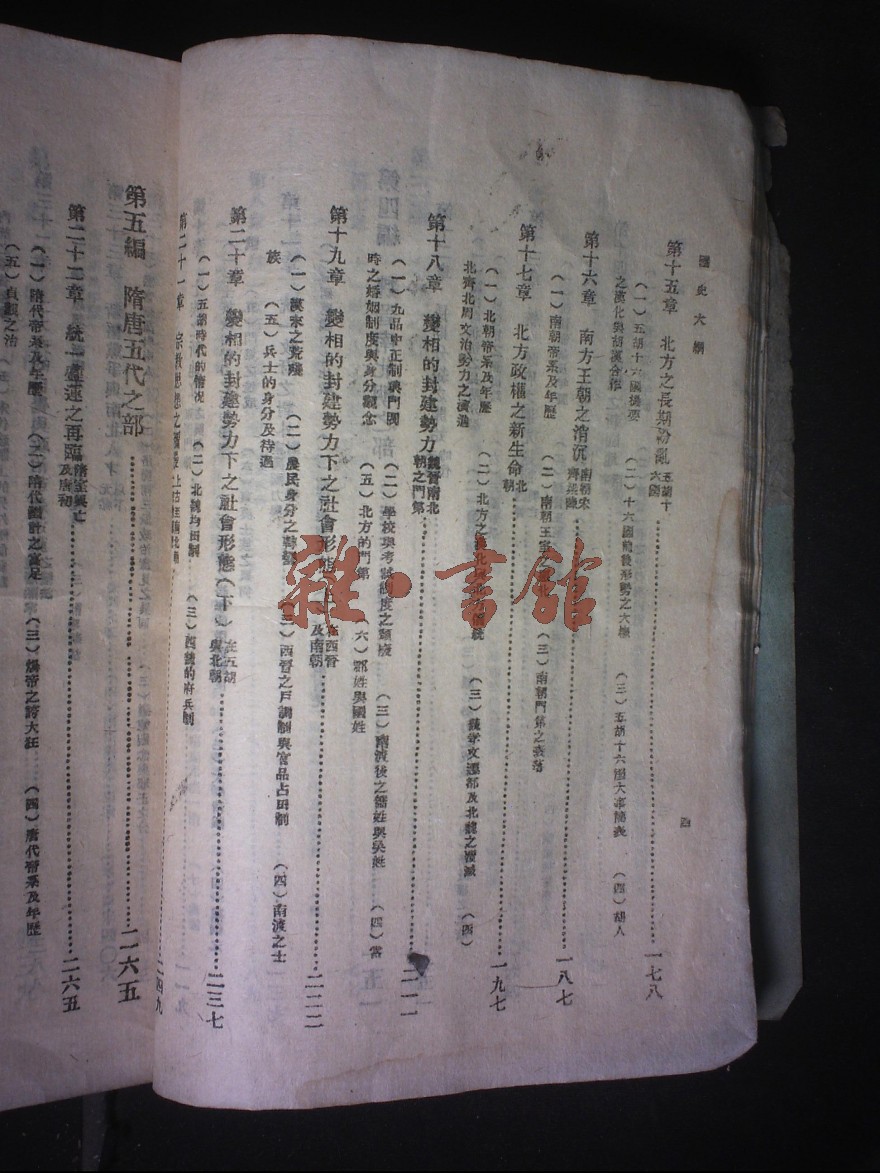 歷史大綱
四
第十五章 北方之長期紛亂 五胡十六國 一七八
（一）五胡十六國提要 （二）十六國前後形勢之大概 （三）五胡十六國大事簡表 （四）胡人
之漢化與胡漢合作
第十六章 南方王朝之消沉 南朝宋齊梁陳 一八七
（一）南朝帝系及年歷 （二）南朝王室之 （三）南朝門第之衰落
第十七章 北方政權之新生命 北朝 一九七
（一）北朝帝系及年歷 （二）北方之漢化與北方儒統 （三）魏孝文遷都及北魏之覆滅 （四）
北齊北周文治勢力之演進
第十八章 變相的封建勢力 魏晉南北朝之門第 二一一
（一）九品中正制與門閥 （二）學校與考試制度之頹廢 （三）南渡後之僑姓與吳姓 （四）當
時之婚姻制度與身分觀念 （五）北方的門第 （六）郡姓與國姓
第十九章 變相的封建勢力下之社會形態 在西晉及南朝 二二二
（一）漢末之荒殘 （二）農民身分之轉變 （三）西晉之戶調制與官品占田制 （四）南渡之士
族 （五）兵士的身分及待遇
第二十章 變相的封建勢力下之社會形態（下） 在五胡與北朝 二三七
（一）五胡時代的情況 （二）北魏均田制 （三）西魏的府兵制
第二十一章 宗教思想之 上古至南北朝 二四九
第五編 隋唐五代之部 二六五
第二十二章 統一盛運之再臨 隋室興亡及唐初 二六五
（一）隋代帝系及年歷 （二）隋代國計之富足 （三）煬帝之誇大狂 （四）唐代帝系及年歷
（五）貞觀之治
雜·書館